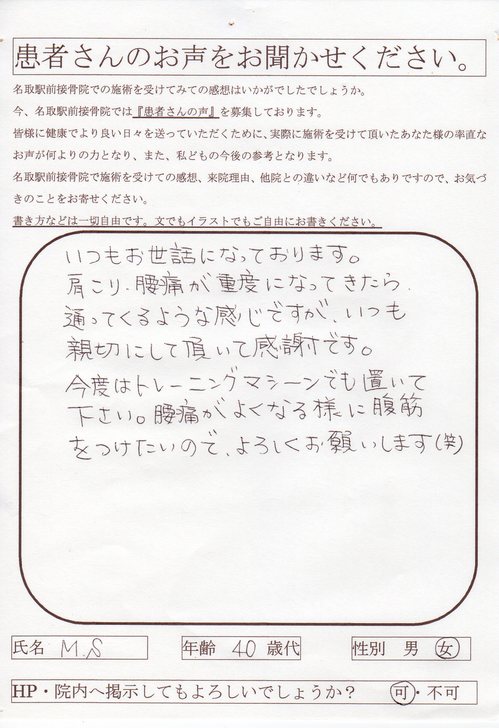 患者さんのお声をお聞かせください。
名取駅前接骨院での施術を受けてみての感想はいかがでしたでしょうか。
今、名取駅前接骨院では『患者さんの声』を募集しております。
皆様に健康でより良い日々を送っていただくために、実際に施術を受けて頂いたあなた様の率直な
お声が何よりの力となり、また、私どもの今後の参考となります。
名取駅前接骨院で施術を受けての感想、来院理由、他院との違いなど何でもありですので、お気づ
きのことをお寄せください。
書き方などは一切自由です。文でもイラストでもご自由にお書きください。
いつもお世話になっております。
肩こり、腰痛が重度になってきたら、
通ってくるような感じですが、いつも
親切にして頂いて感謝です。
今度はトレーニングマシーンでも置いて
下さい。腰痛がよくなる様に腹筋
をつけたいので、よろしくお願いします(笑)
氏名 M.S 年齢 40 歳代 性別 男 女
HP・院内へ掲示してもよろしいでしょうか? 可・不可